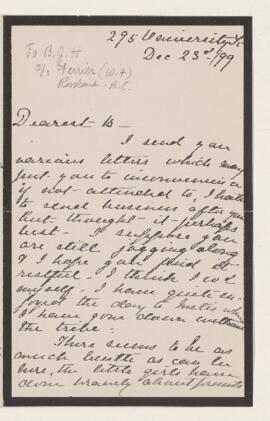 295 University St
Dec 23rd /99
To B.J.H
c/o Ferrier (W.F)
Rossland - B.C.
Dearest B -
I send you
various letters which may
put you to inconvenience
if not attended to, I hate
to send business after you
but thought it perhaps
best - I suppose you
are still jogging along
& I hope you find it
restful - I think I
myself - I have quite
the day to
I have gone down without
the tribe.
There seems to be as
much bustle as can be
here, the little girls have
done bravely about presents